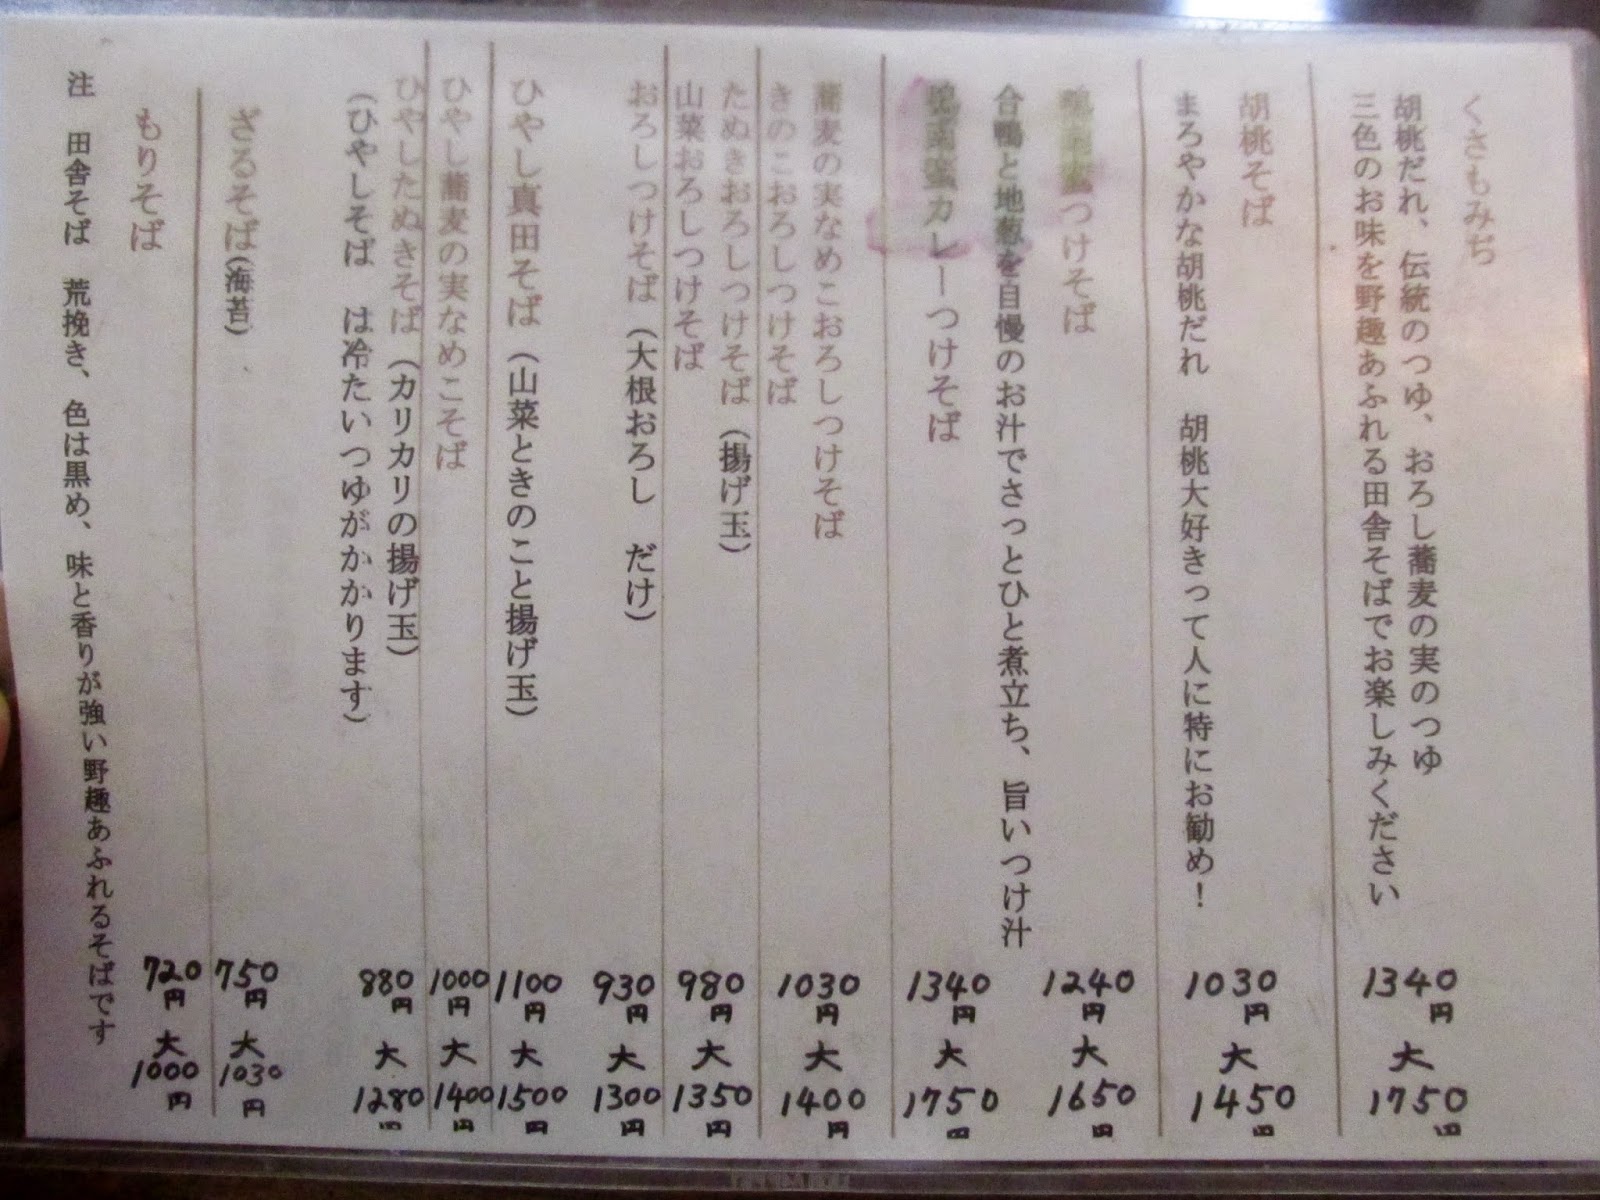 くさもみぢ
胡桃だれ、伝統のつゆ、おろし蕎麦の実のつゆ
三色のお味を野趣あふれる田舎そばでお楽しみください
1340円
大
1750円
胡桃そば
まろやかな胡桃だれ 胡桃大好きって人に特にお勧め!
1030円
大
1450円
つけそば
合鴨と地葱を自慢のお汁でさっとひと煮立ち、旨いつけ汁
1240円
大
1650円
カレーつけそば
1340円
大
1750円
蕎麦の実なめこおろしつけそば
きのこおろしつけそば
1030円
大
1400円
たぬきおろしつけそば(揚げ玉)
山菜おろしつけそば
980円
大
1350円
おろしつけそば(大根おろし だけ)
930円
大
1300円
ひやし真田そば(山菜ときのこと揚げ玉)
1100円
大
1500円
ひやし蕎麦の実なめこそば
1000円
大
1400円
ひやしたぬきそば(カリカリの揚げ玉)
(ひやしそば は冷たいつゆがかかります)
880円
大
1280円
ざるそば(海苔)
750円
大
1030円
もりそば
720円
大
1000円
注 田舎そば 荒挽き、色は黒め、味と香りが強い野趣あふれるそばです